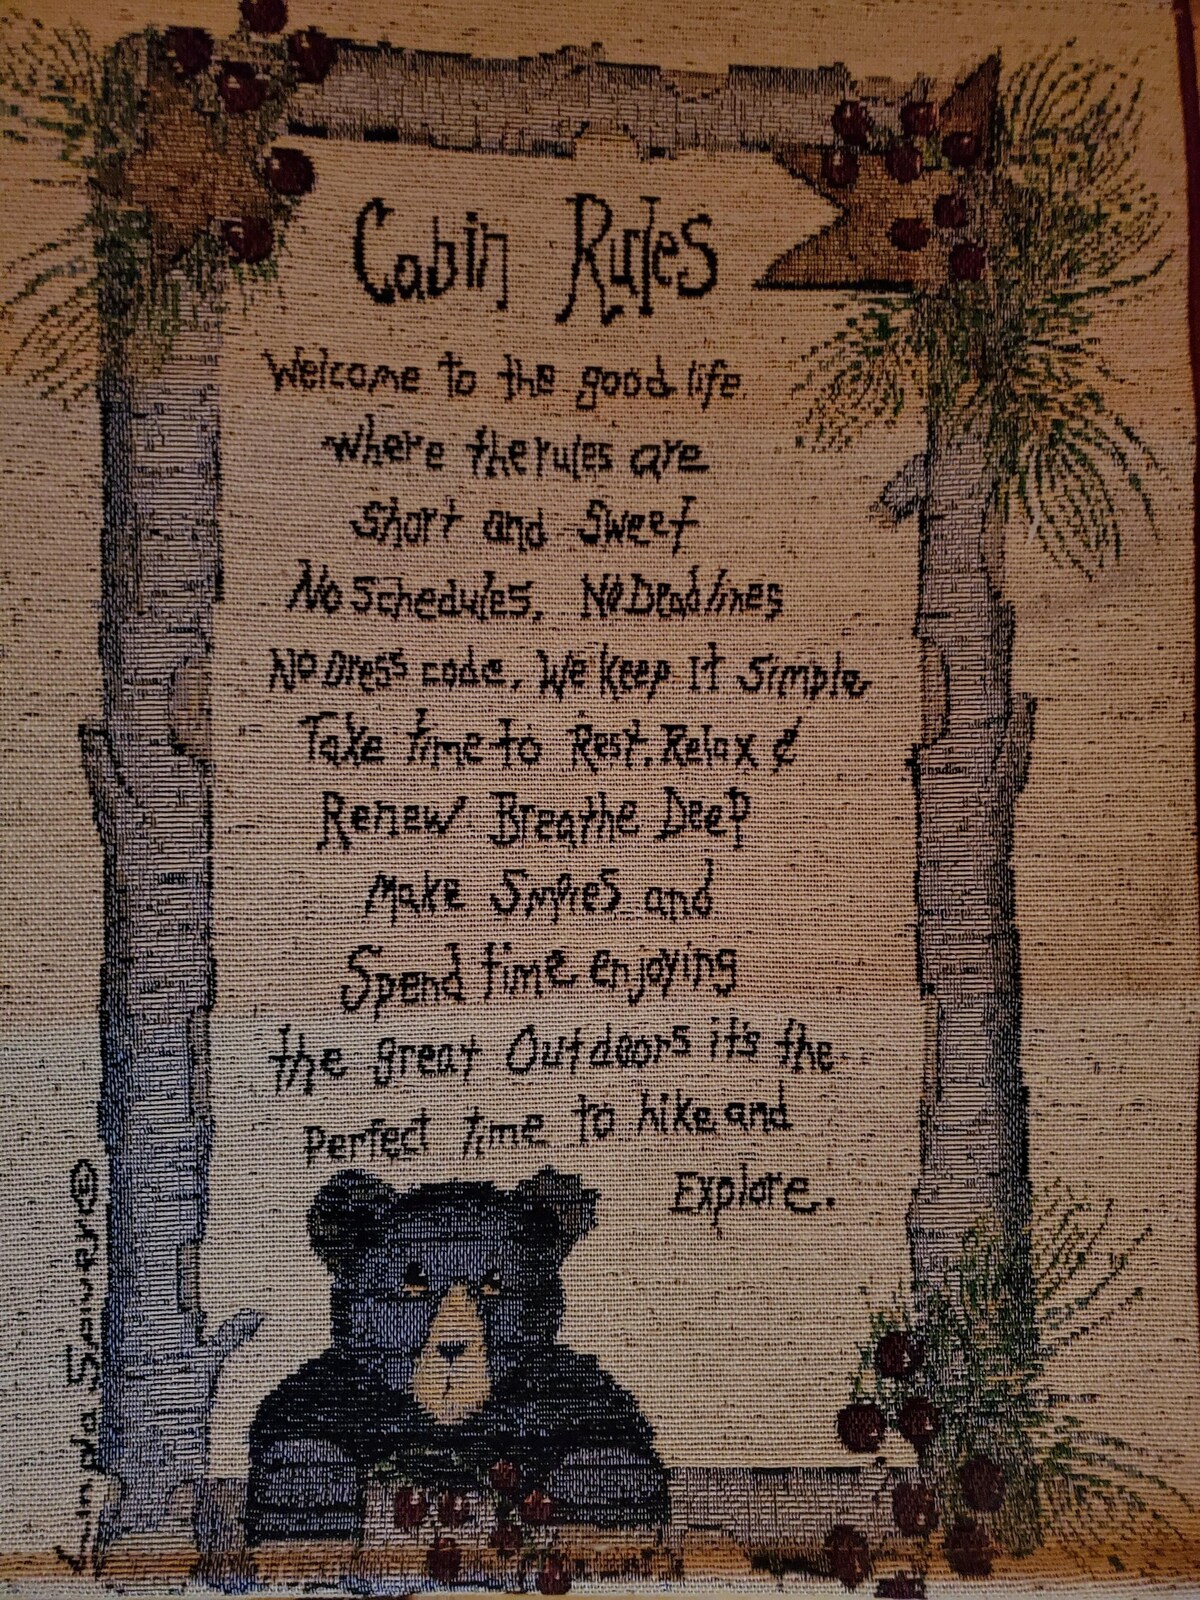 Cabin Rules
Welcome to the good life
where the rules are
short and sweet
No Schedules, No Deadlines
No Dress code, We Keep It Simple
Take time to Rest, Relax &
Renew Breathe Deep
Make S'mores and
Spend time enjoying
the great Outdoors it's the
perfect time to hike and
Explore.
Linda Spivey®